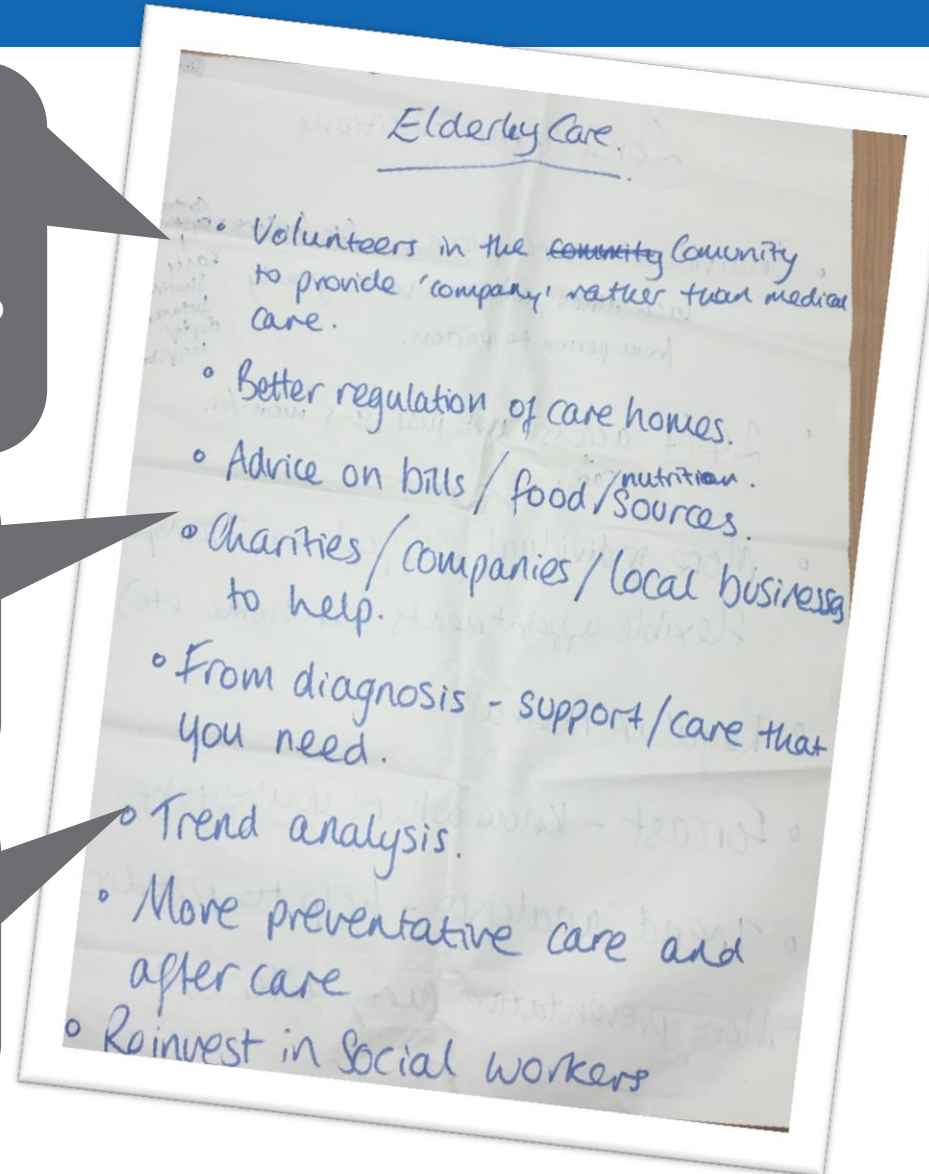 Elderley Care.
• Volunteers in the comunity Comunity
to provide 'company' rather than medical
care.
• Better regulation of care homes.
• Advice on bills / food / nutrition.
sources.
• Charities / companies / local businesses
to help.
• From diagnosis - support/care that
you need.
• Trend analysis.
• More preventative care and
after care
• Reinvest in Social workers